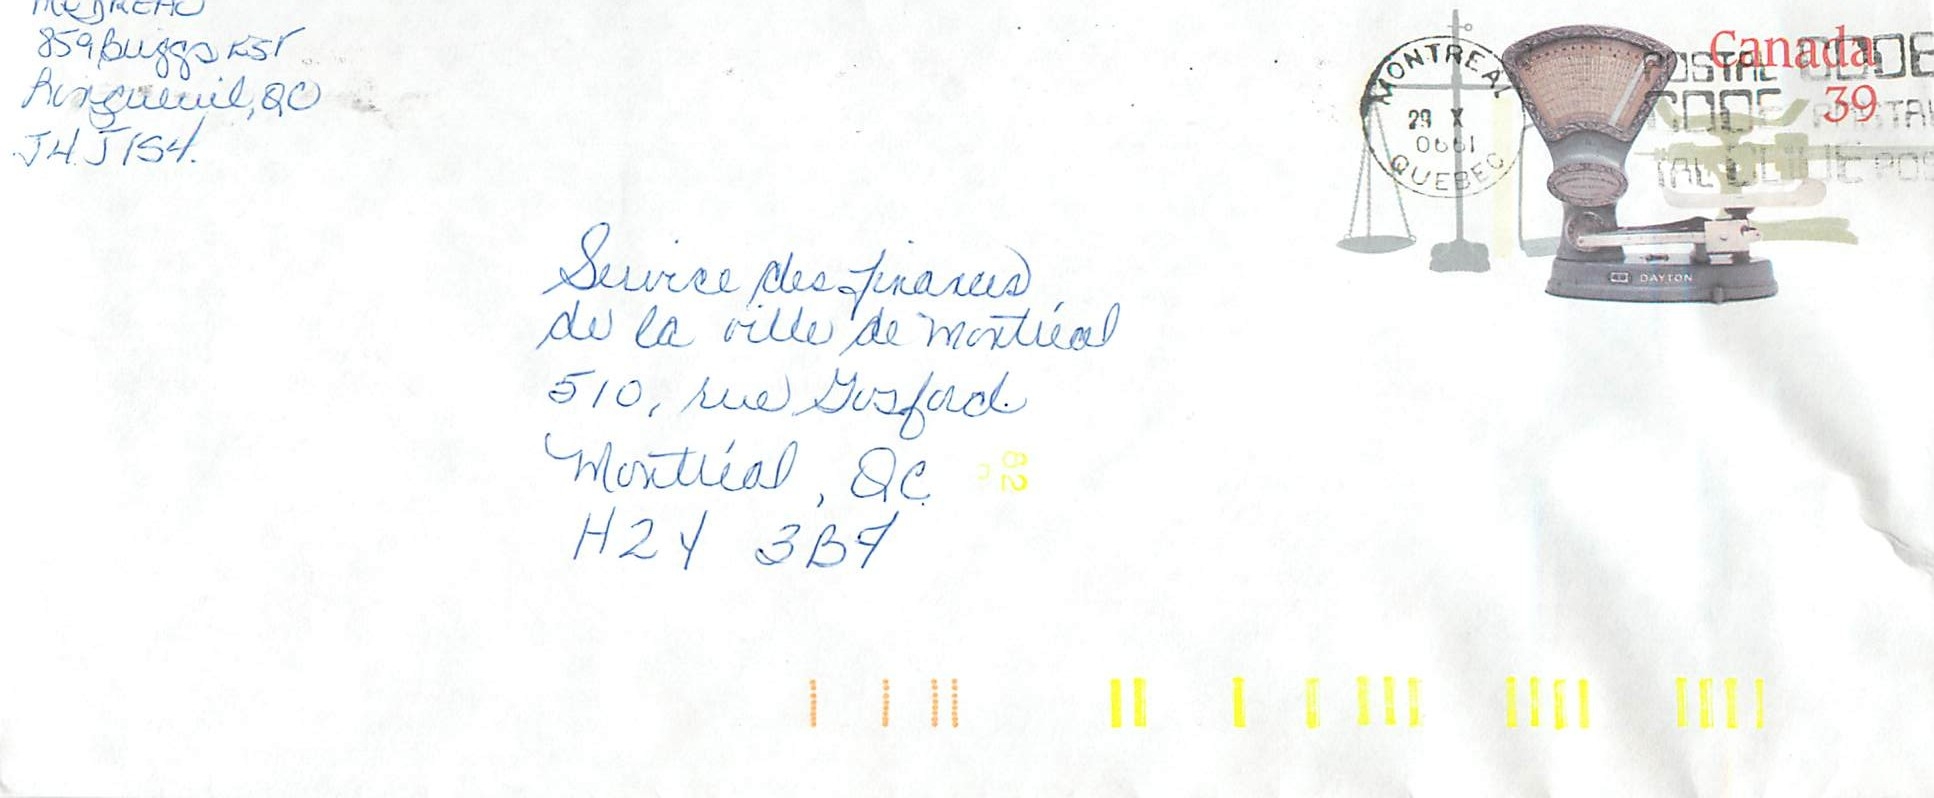 859 Briggs EST
Longueuil, QC
J4J 1S4.
MONTREAL
29 X
1990
QUEBEC
Canada
39
POSTAL CODE
CODE POSTAL
DAYTON
Service des finances
de la ville de Montréal
510, rue Gosford
Montréal, QC
H2Y 3B7